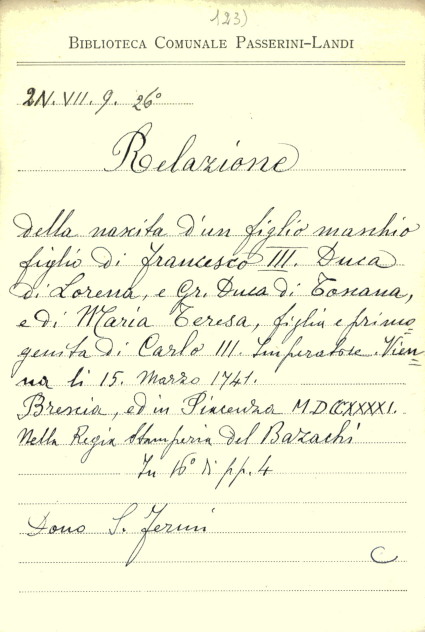 123)
BIBLIOTECA COMUNALE PASSERINI-LANDI
2N. VII. 9. 26°
Relazione
della nascita d'un figlio maschio
figlio di Francesco III. Duca
di Lorena, e Gr. Duca di Toscana,
e di Maria Teresa, figlia e primo=
genita di Carlo III. Imperatore. Vien=
na li 15. Marzo 1741.
Brescia, ed in Piacenza MDCCXXXXI.
Nella Regia Stamperia del Bazachi
In 16° di pp. 4
Dono S. Fermi
C